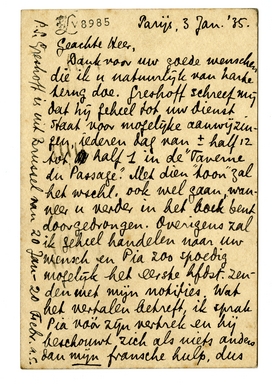 8985
Parijs, 3 Jan. '35.
Geachte Heer,
Dank voor uw goede wenschen
die ik u natuurlijk van harte
terug doe. Greshoff schreef mij
dat hij geheel tot uw dienst
staat voor mogelijke aanwijzin-
gen iedereen dag van ± half 12
tot half 1 in de 'Taverne
du Passage'. Met dien 'toon' zal
het wschl. ook wel gaan, wan-
neer u verder in het boek bent
doorgedrongen. Overigens zal
ik geheel handelen naar uw
wensch en Pia zoo spoedig
mogelijk het eerste hfdst. zen-
den met mijn notities. Wat
het vertalen betreft, ik sprak
Pia vóór zijn vertrek en hij
beschouwt zich als niets anders
dan mijn fransche hulp, dus
P.S. Greshoff is uit Brussel van 20 Jan - 20 Febr. a.s.